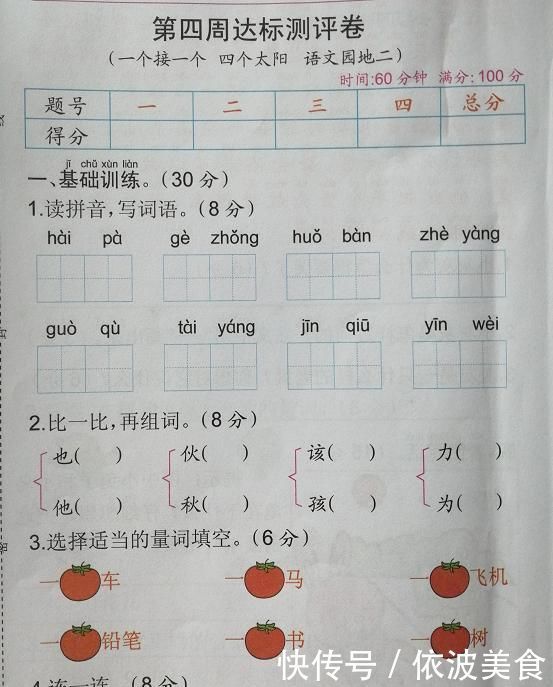 第四周达标测评卷
(一个接一个 四个太阳 语文园地二)
时间:60分钟 满分:100分
题号 一 二 三 四 总分
得分
jī chǔ xùn liàn
一、基础训练。(30分)
1.读拼音,写词语。(8分)
hài pà gè zhǒng huǒ bàn zhè yàng
guò qù tài yáng jīn qiū yīn wèi
2.比一比,再组词。(8分)
也( ) 伙( ) 该( ) 力( )
他( ) 秋( ) 孩( ) 为( )
3.选择适当的量词填空。(6分)
一 车 一 马 一 飞机
一 铅笔 一 书 一 树
4.连一连。(8分)
快传号 / 依波美食